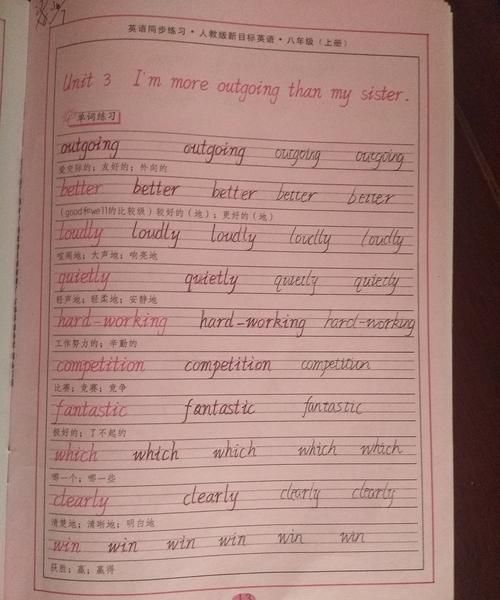 英语同步练习·人教版新目标英语·八年级（上册）
Unit 3 I'm more outgoing than my sister.
单词练习
outgoing outgoing outgoing outgoing
爱交际的；友好的；外向的
better better better better better
（good和well的比较级）较好的（地）；更好的（地）
loudly loudly loudly loudly loudly
喧闹地；大声地；响亮地
quietly quietly quietly quietly
轻声地；轻柔地；安静地
hard-working hard-working hard-working
工作努力的；辛勤的
competition competition competition
比赛；竞赛；竞争
fantastic fantastic fantastic
极好的；了不起的
which which which which which
哪一个；哪一些
clearly clearly clearly clearly
清楚地；清晰地；明白地
win win win win win win
获胜；赢；赢得
13